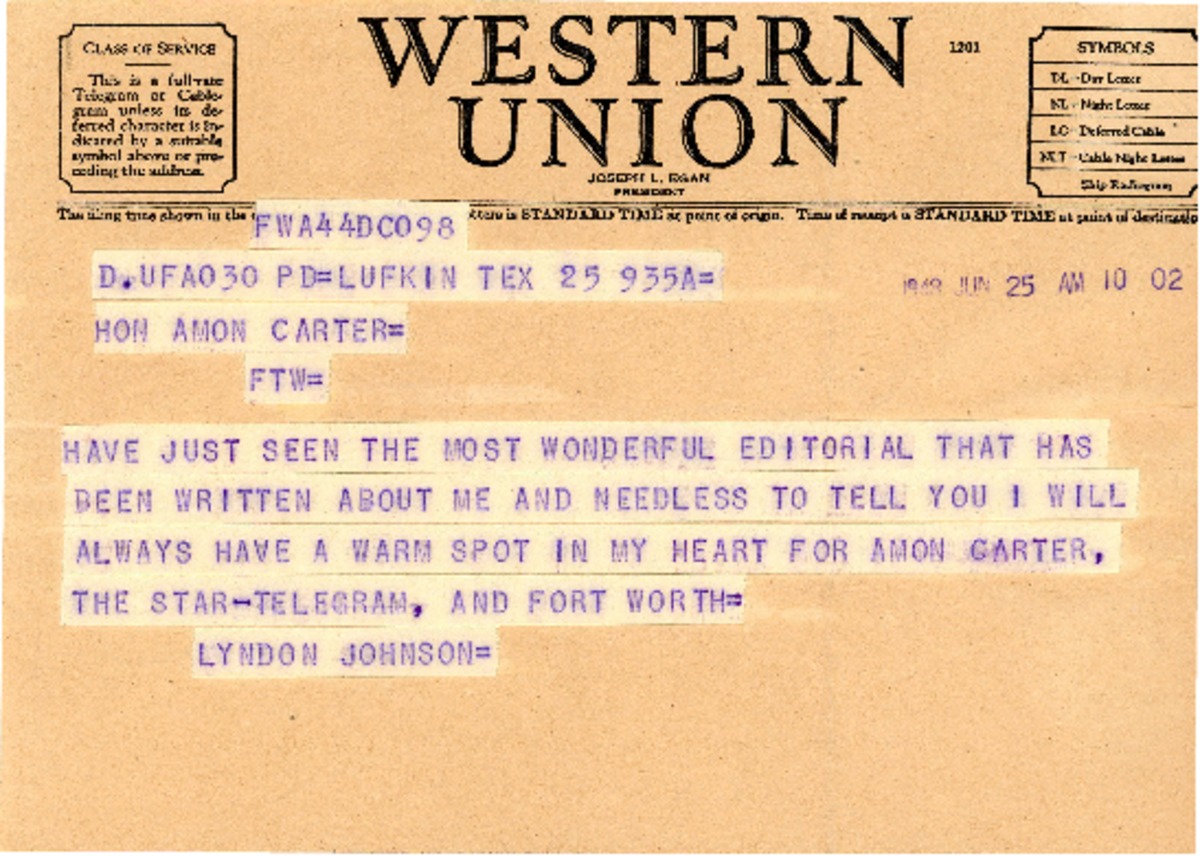 CLASS OF SERVICE
This is a full-rate
Telegram or Cable-
gram unless its de-
ferred character is in-
dicated by a suitable
symbol above or pre-
ceding the address.
WESTERN
UNION
1201
JOSEPH L. EGAN
PRESIDENT
SYMBOLS
DL - Day Letter
NL - Night Letter
LC - Deferred Cable
NLT - Cable Night Letter
Ship Radiogram
The filing time shown in the is STANDARD TIME at point of origin. Time of receipt is STANDARD TIME at point of destination
FWA44DC098
D.UFA030 PD=LUFKIN TEX 25 935A=
JUN 25 AM 10 02
HON AMON CARTER=
FTW=
HAVE JUST SEEN THE MOST WONDERFUL EDITORIAL THAT HAS
BEEN WRITTEN ABOUT ME AND NEEDLESS TO TELL YOU I WILL
ALWAYS HAVE A WARM SPOT IN MY HEART FOR AMON CARTER,
THE STAR-TELEGRAM, AND FORT WORTH=
LYNDON JOHNSON=